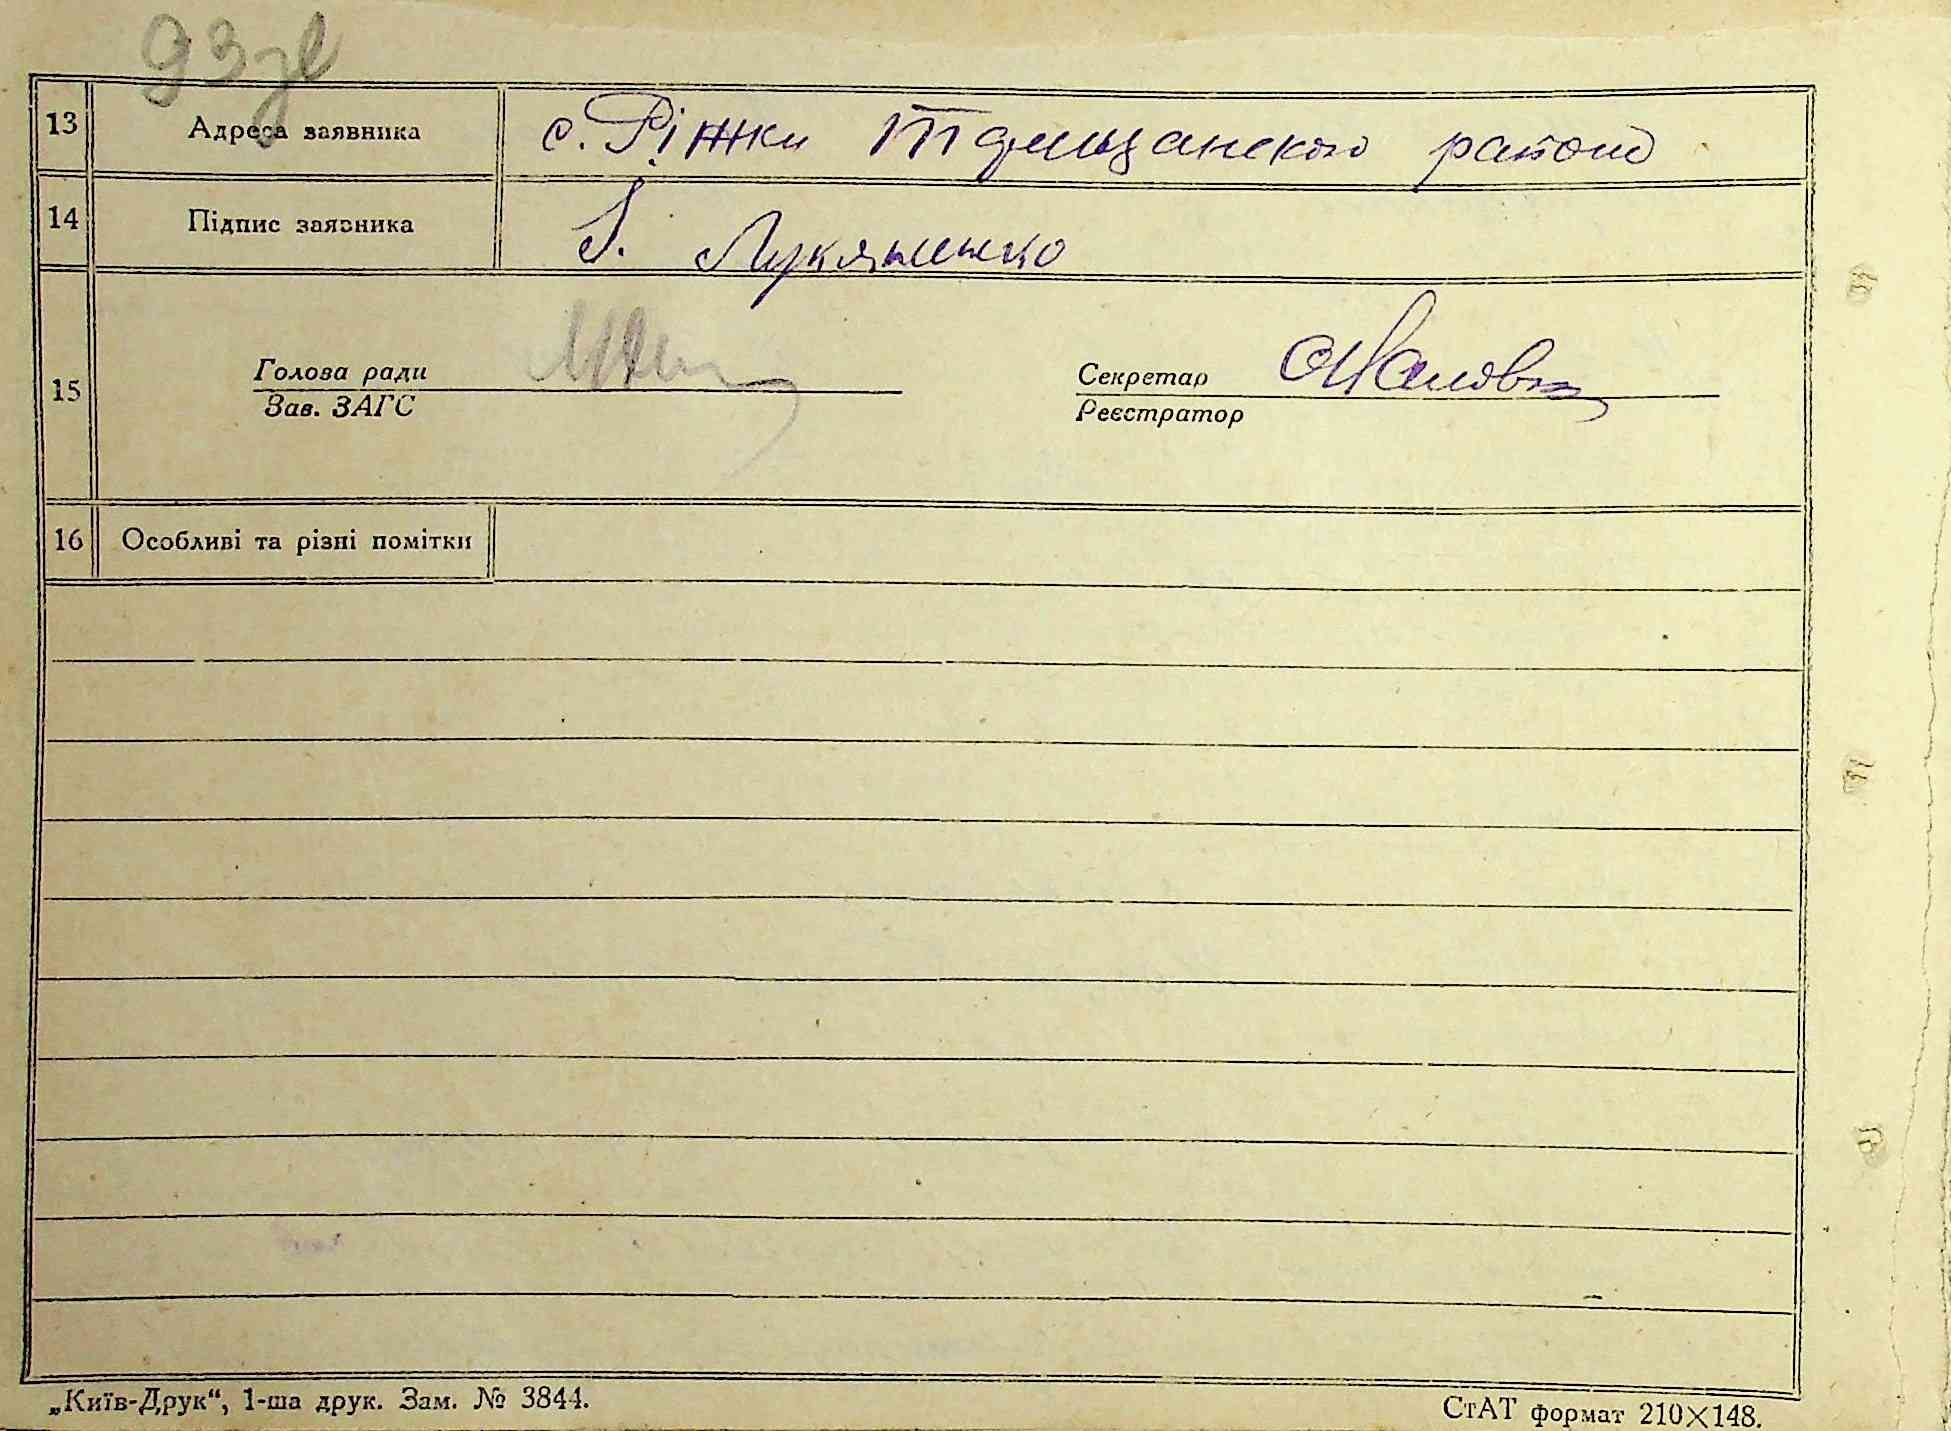 93зв
13 Адреса заявника с. Ріжки Таращанского району
14 Підпис заявника Лукяненко
15 Голова ради
Зав. ЗАГС
Секретар
Реєстратор
16 Особливі та різні помітки
„Київ-Друк“, 1-ша друк. Зам. № 3844.
СтАТ формат 210×148.